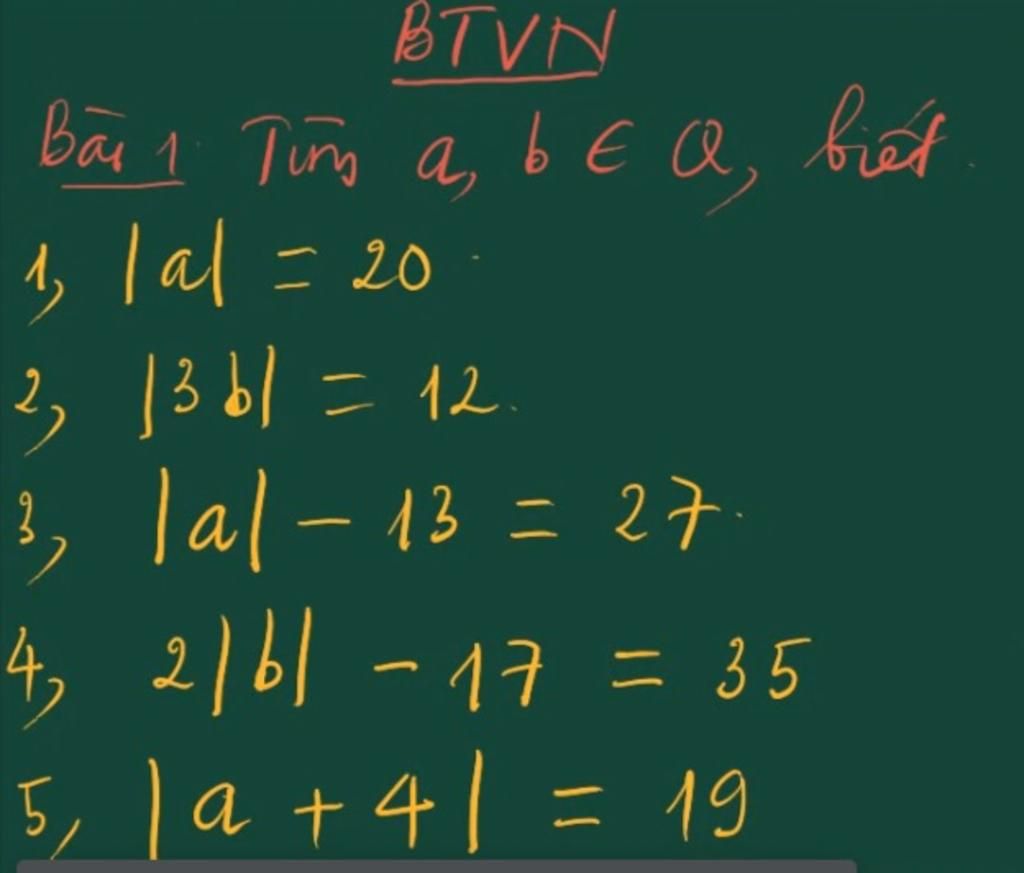 BTVN
Bài 1. Tìm a, b ∈ Q, biết.
1, |a| = 20
2, |3b| = 12.
3, |a| - 13 = 27.
4, 2|b| - 17 = 35
5, |a + 4| = 19